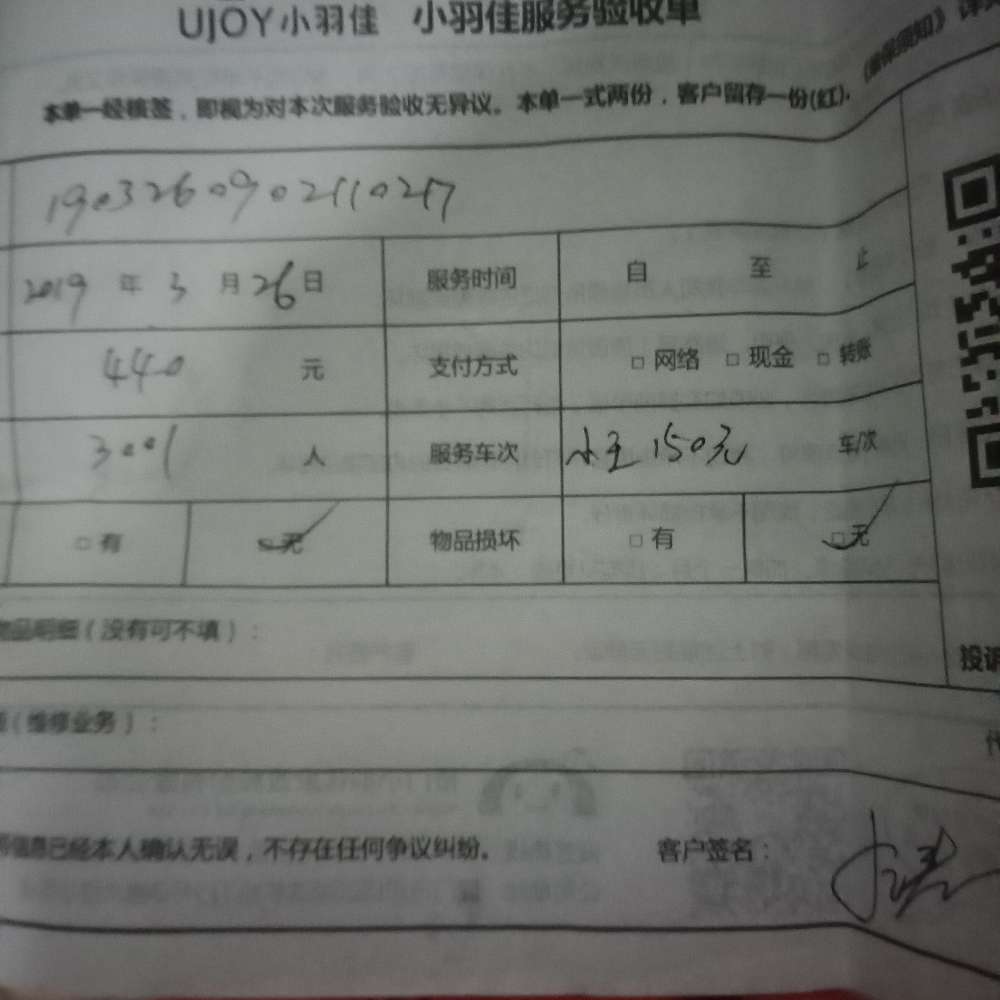 UJOY小羽佳 小羽佳服务验收单
本单一经核签，即视为对本次服务验收无异议。本单一式两份，客户留存一份(红)。
2019 年 3 月 26 日 服务时间 自 至 止
440 元 支付方式 □ 网络 □ 现金 □ 转账
3001 人 服务车次 小王150元 车/次
□ 有 □ 无 物品损坏 □ 有 □ 无
物品明细（没有可不填）：
（维修业务）：
投诉
信息已经本人确认无误，不存在任何争议纠纷。 客户签名：